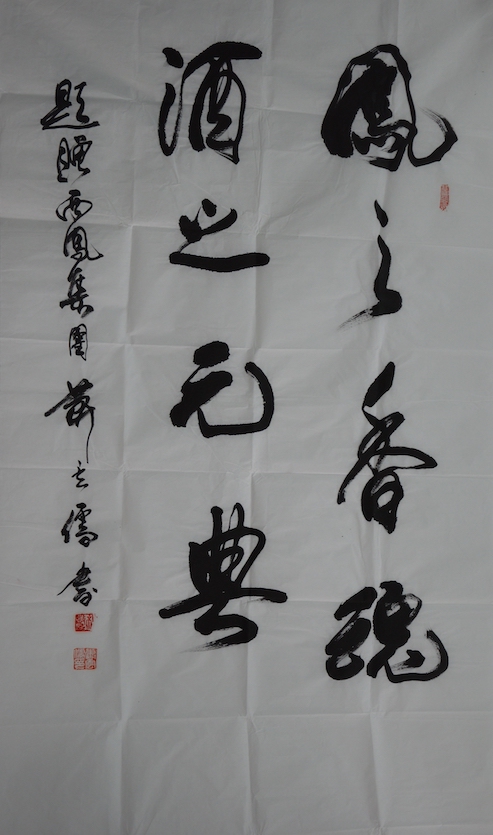 鳳之香魂
酒之元典
題贈西鳳集團 儒書